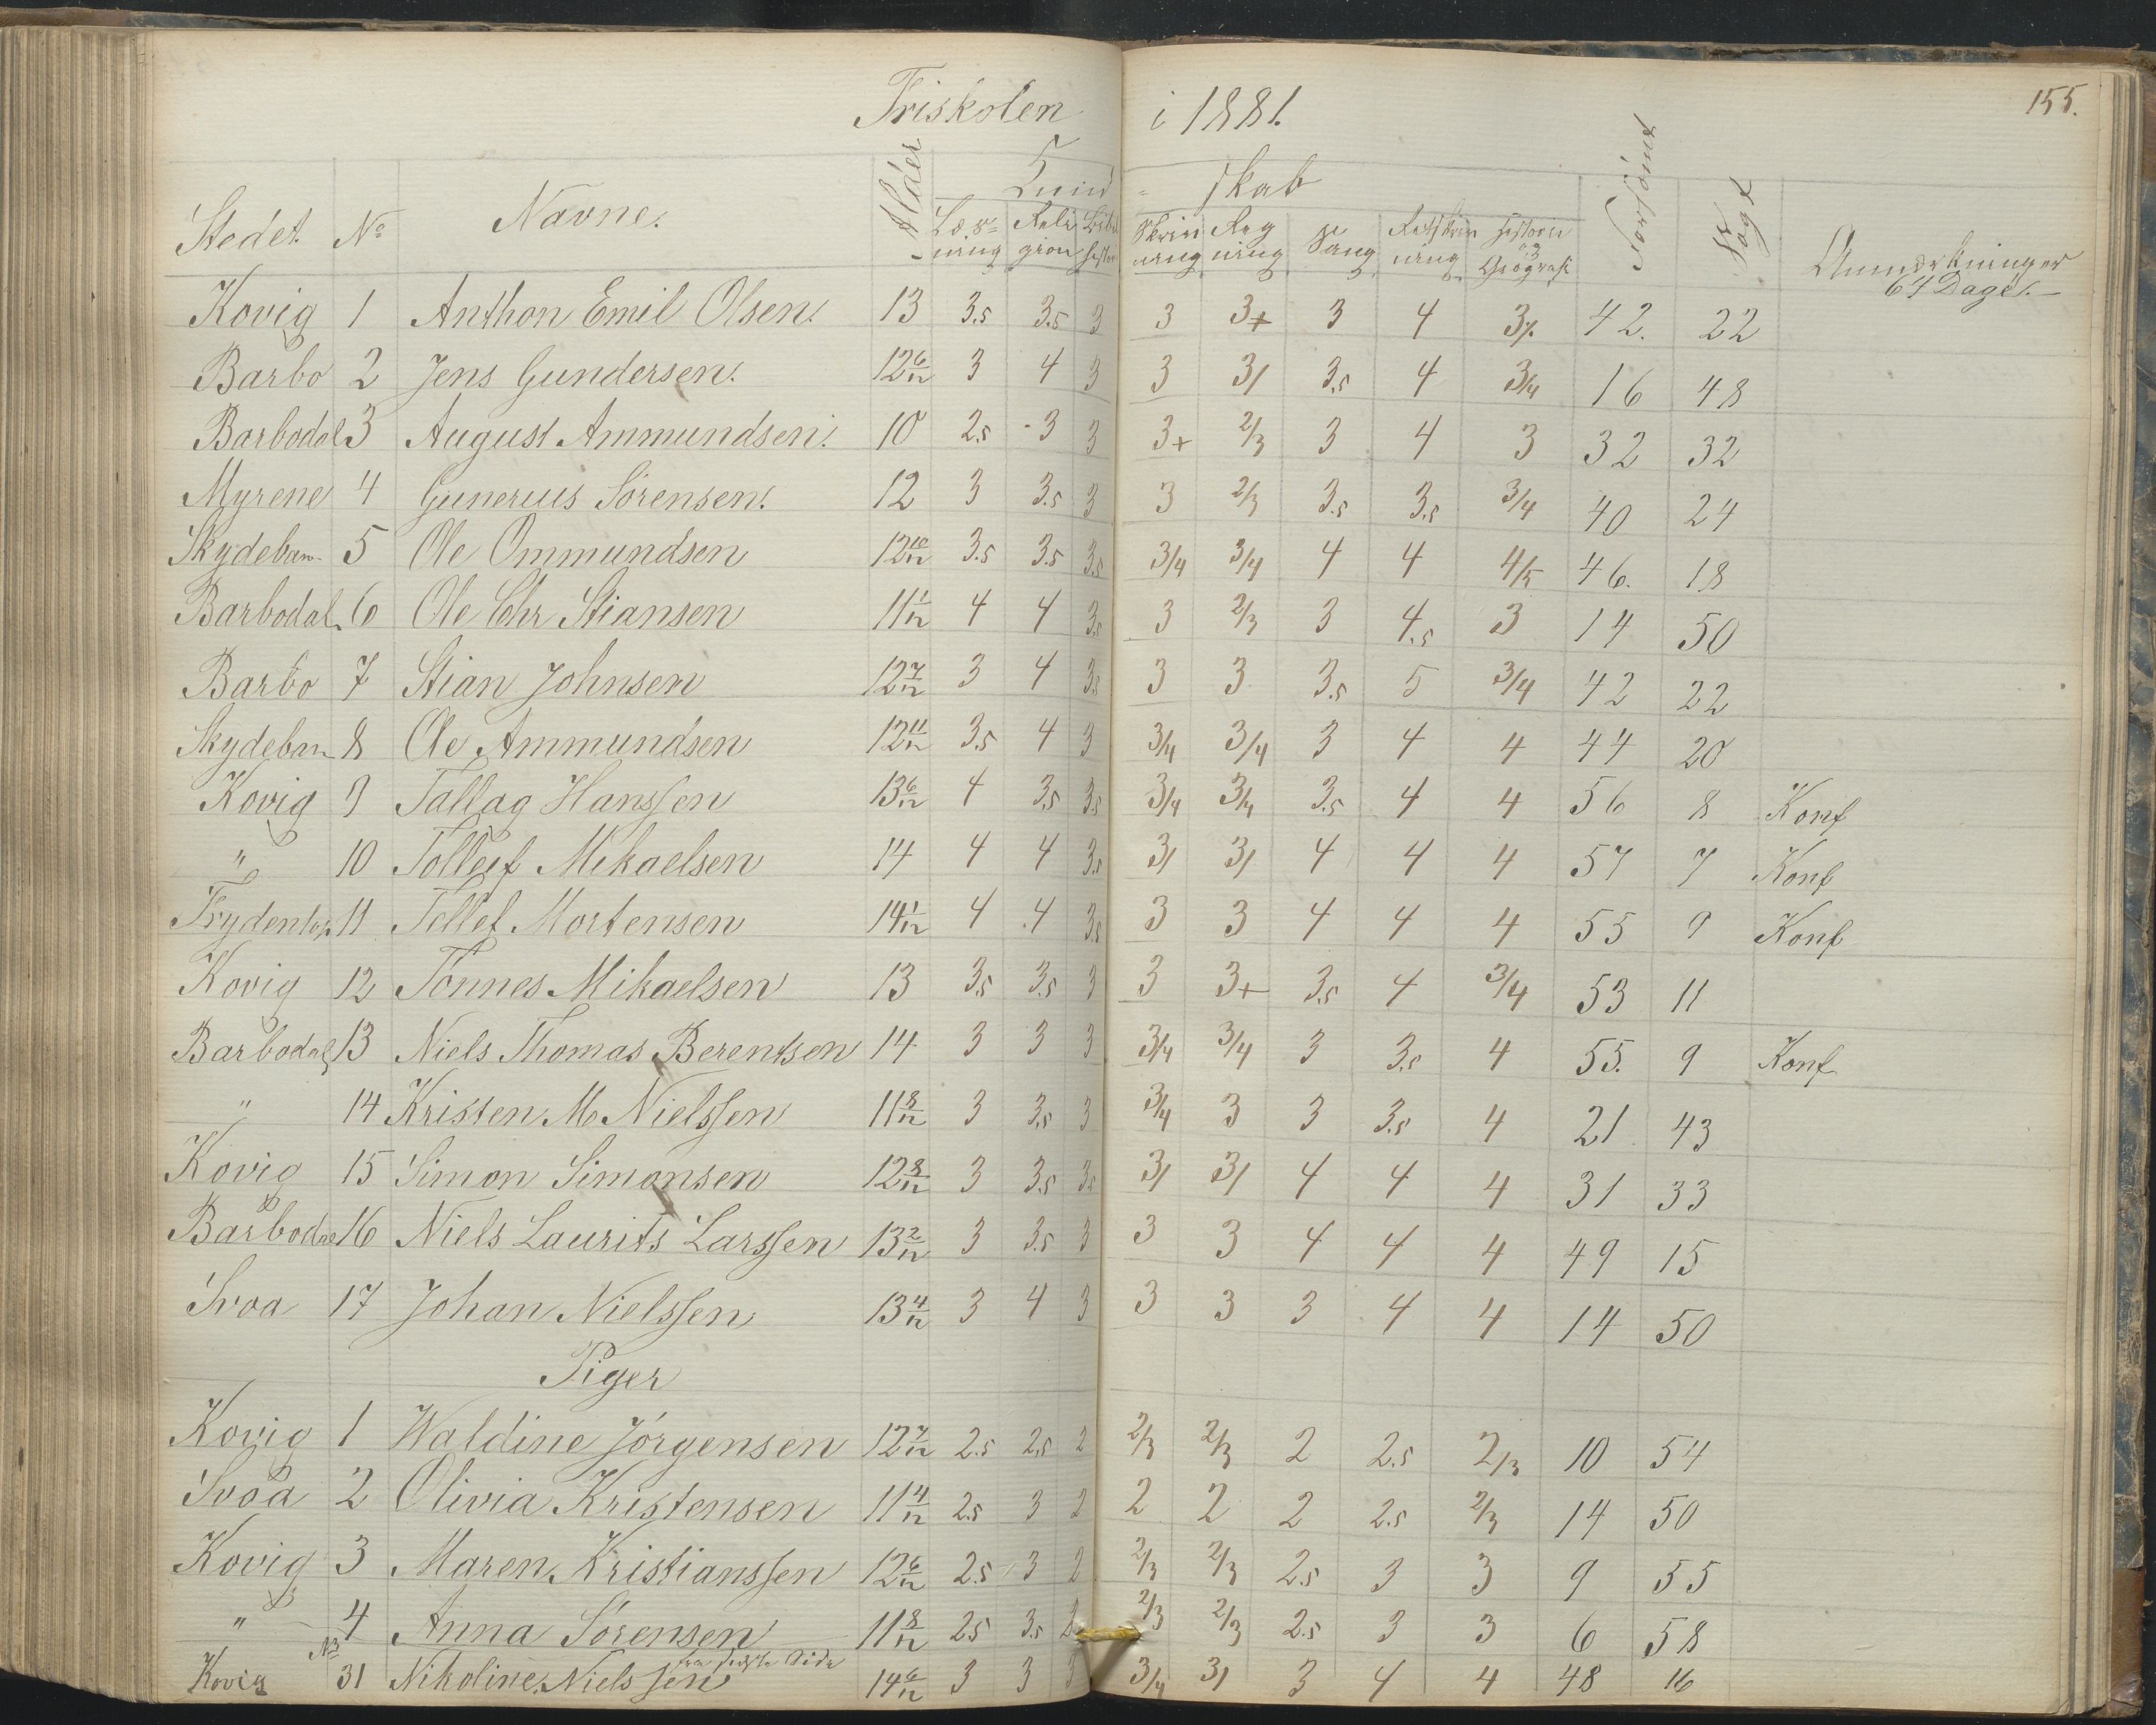 Friskolen i 1881. 155.
Stedet. No Navne. Alder Kund = skab Forsömt Søgt Anmærkninger
Læs= ning Reli gion Bibel histor Skriv ning Reg ning Sang Retskriv ning Historie og Geografi 64 Dage.
Kovig 1 Anthon Emil Olsen. 13 3.5 3.5 3 3 3+ 3 4 3/. 42. 22
Barbo 2 Jens Gundersen. 12 6/12 3 4 3 3 3/ 3.5 4 3/4 16 48
Barbodal 3 August Ammundsen. 10 2.5 3 3 3+ 2/3 3 4 3 32 32
Myrene 4 Gunerius Sörensen. 12 3 3.5 3 3 2/3 3.5 3.5 3/4 40 24
Skydeban 5 Ole Ommundsen 12 10/12 3.5 3.5 3.5 3/4 3/4 4 4 4/5 46. 18
Barbodal. 6 Ole Chr Stiansen 11 1/12 4 4 3.5 3 2/3 3 4.5 3 14 50
Barbo 7 Stian Johnsen 12 7/12 3 4 3.5 3 3 3.5 5 3/4 42 22
Skydeban 8 Ole Ammundsen 12 11/12 3.5 4 3 3/4 3/4 3 4 4 44 20
Kovig 9 Tallag Hanssen 13 6/12 4 3.5 3.5 3/4 3/4 3.5 4 4 56 8 Konf
" 10 Tolleif Mikaelsen 14 4 4 3.5 3/ 3/ 4 4 4 57 7 Konf
11 Tellef Mortensen 14 1/12 4 4 3.5 3 3 4 4 4 55 9 Konf
Kovig 12 Tönnes Mikaelsen 13 3.5 3.5 3 3 3+ 3.5 4 3/4 53 11
Barbodal 13 Niels Thomas Berentsen 14 3 3 3 3/4 3/4 3 3.5 4 55. 9 Konf
" 14 Kristen M Nielssen 11 8/12 3 3.5 3 3/4 3 3 3.5 4 21 43
Kovig 15 Simon Simonsen 12 8/12 3 3.5 3.5 3/ 3/ 4 4 4 31 33
Barbodal 16 Niels Laurits Larssen 13 2/12 3 3.5 3 3 3 4 4 4 49 15
Svoa 17 Johan Nielssen 13 4/12 3 4 3 3 3 3 4 4 14 50
Piger
Kovig 1 Waldine Jörgensen 12 7/12 2.5 2.5 2 2/3 2/3 2 2.5 2/3 10 54
Svoa 2 Olivia Kristensen 11 4/12 2.5 3 2 2 2 2 2.5 2/3 14 50
Kovig 3 Maren Kristianssen 12 6/12 2.5 3 2 2/3 2/3 2.5 3 3 9 55
" 4 Anna Sörensen 11 8/12 2.5 3.5 2 2/3 2/3 2.5 3 3 6 58
Kovig No 31 Nikoline Nielssen 14 6/12 3 3 3 3/4 3/ 3 4 4 48 16